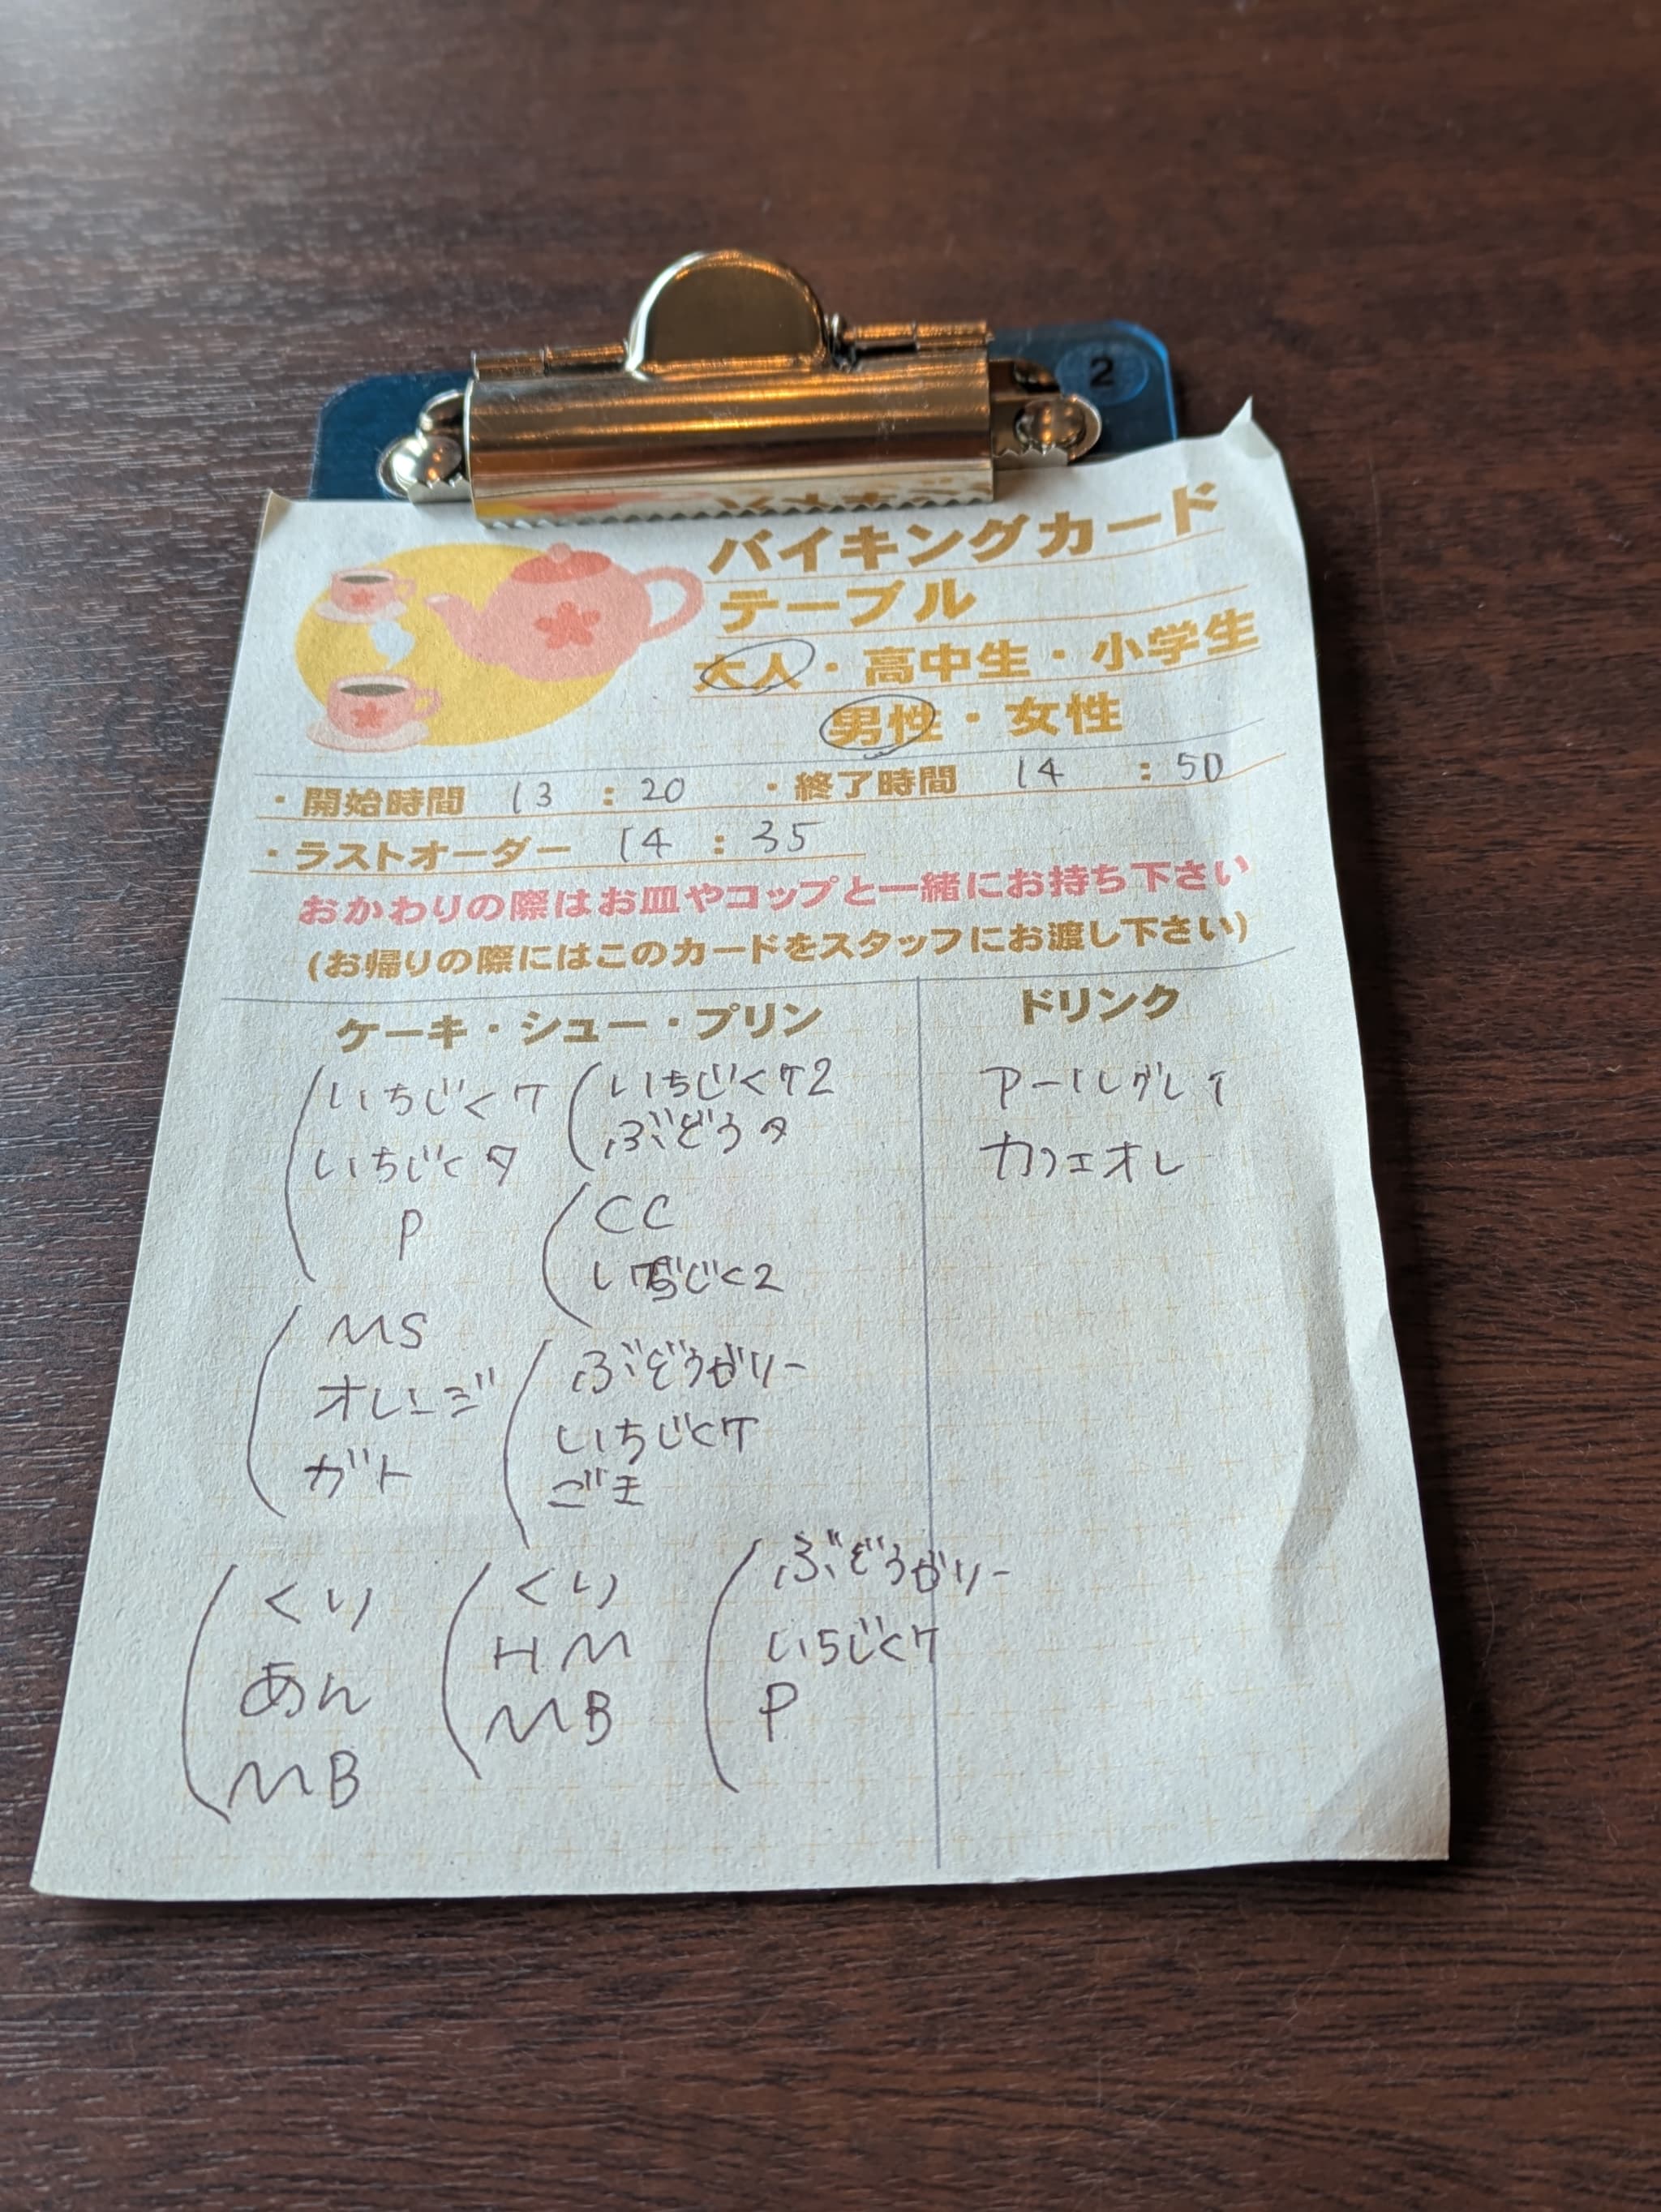 2
バイキングカード
テーブル
大人・高中生・小学生
男性・女性
・開始時間 13 : 20 ・終了時間 14 : 50
・ラストオーダー 14 : 35
おかわりの際はお皿やコップと一緒にお持ち下さい
(お帰りの際にはこのカードをスタッフにお渡し下さい)
ケーキ・シュー・プリン
いちじくケ
いちじくタ
P
MS
オレンジ
ガト
くり
あん
MB
いちじくケ2
ぶどうタ
CC
ぶどうゼリー
いちじくケ
ごま
くり
HM
MB
ぶどうゼリー
いちじくケ
P
ドリンク
アールグレイ
カフェオレ